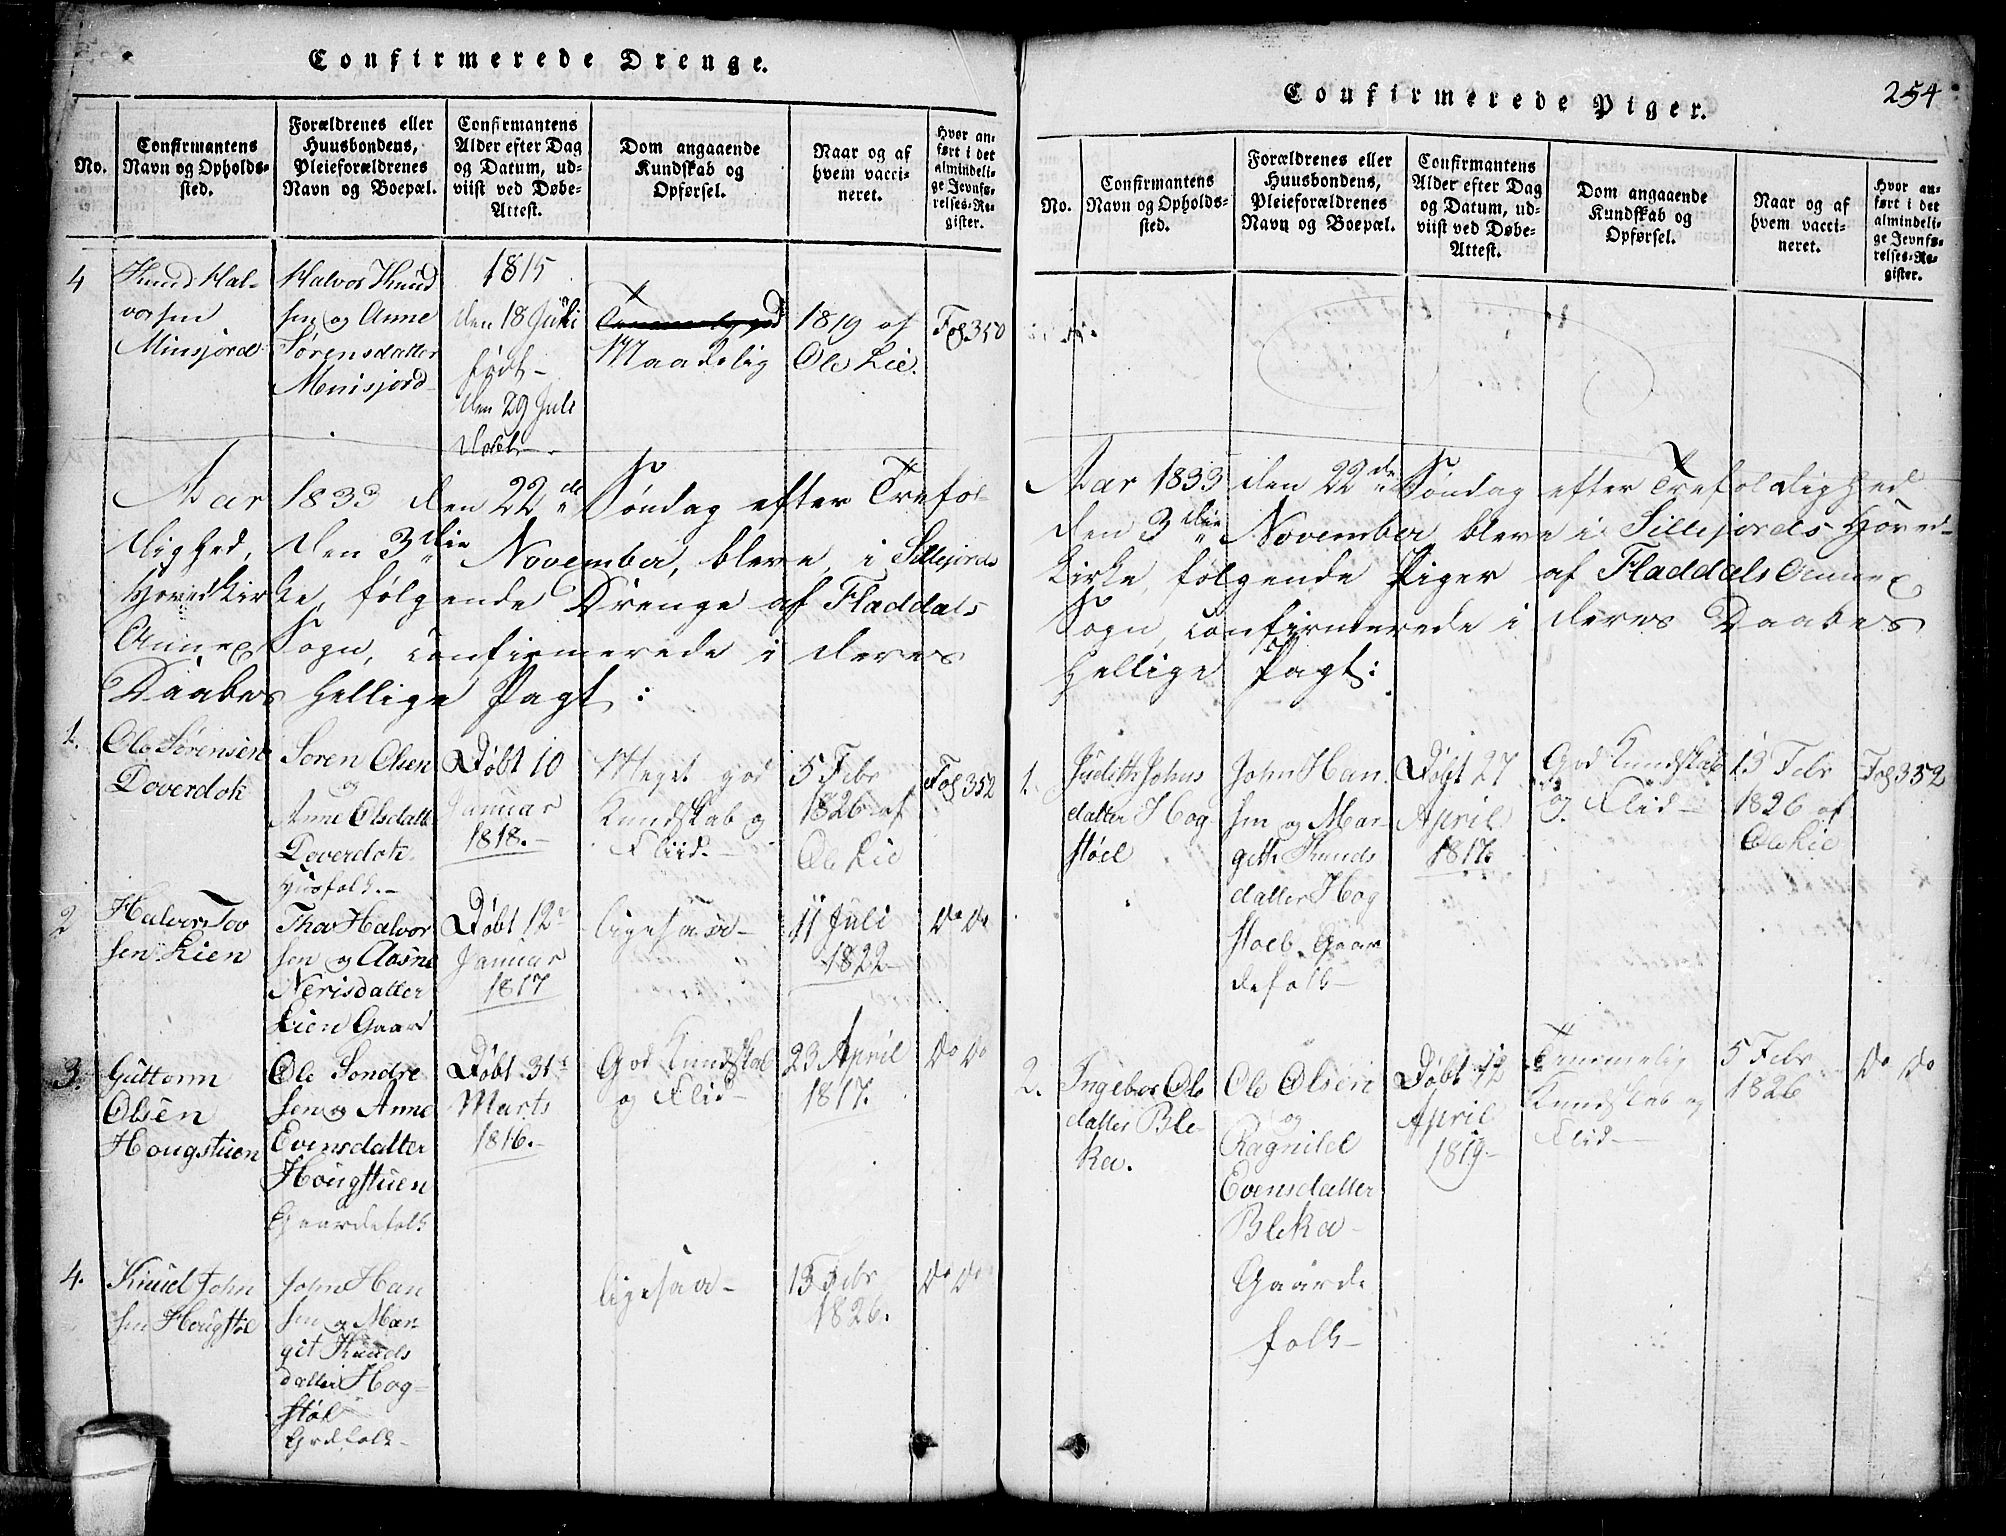 Confirmerede Drenge.
No.
Confirmantens
Navn og Opholds-
sted.
Forældrenes eller
Huusbondens,
Pleieforældrenes
Navn og Boepæl.
Confirmantens
Alder efter Dag
og Datum, ud-
viist ved Døbe-
Attest.
Dom angaaende
Kundskab og
Opførsel.
Naar og af
hvem vacci-
neret.
Hvor an-
ført i det
almindeli-
ge Jevnfø-
relses-Re-
gister.
4
Knud Hal-
vorsen
Minsjord
Halvor Knud
sen og Anne
Sørensdatter
Menisjord
1815
den 18 Juli
født
den 29 Juli
Døbt
Maadelig
1819 af
Ole Lie.
Fog 350
Aar 1833 den 22de Søndag efter Trefol-
dighed, den 3die November, bleve, i Sillejords
Hovedkirke, følgende Drenge af Fladdals
Annex Sogn, confirmerede i deres
Daabes hellige Pagt:
1.
Ole Sørensen
Doverdok
Soren Olsen
og
Anne Olsdatt
Doverdok.
Huusfolk.-
Døbt 10
Januar
1818.-
Meget god
Kundskab og
Fliid.-
5 Febr
1826 af
Ole Lie
Fog 352
2
Halvor Tov
sen Lien
Thov Halvor
sen og Aasne
Nerisdatter
Lien Gaard
Døbt 12
Januar
1817
ligesaa-
11 Juli
1822
Do Do
3.
Guttorm
Olsen
Hougstuen
Ole Sondre
sen og Anne
Evensdatter
Hougstuen
Gaardefolk
Døbt 31
Marts
1816.-
God Kundskab
og Flid-
23 April
1817.
Do Do
4.
Knud John
sen Hougstøl
John Han
sen og Mar
git Knuds
datter Hog-
støl
Grdfolk-
ligesaa-
13 Febr
1826.
Do Do
Confirmerede Piger.
254
No.
Confirmantens
Navn og Opholds-
sted.
Forældrenes eller
Huusbondens,
Pleieforældrenes
Navn og Boepæl.
Confirmantens
Alder efter Dag
og Datum, ud-
viist ved Døbe-
Attest.
Dom angaaende
Kundskab og
Opførsel.
Naar og af
hvem vacci-
neret.
Hvor an-
ført i det
almindeli-
ge Jevnfø-
relses-Re-
gister.
Aar 1833 den 22de Søndag efter Trefoldighed
den 3die November bleve i Sillejords Hoved-
kirke, følgende Piger af Fladdals Annex
Sogn, confirmerede i deres Daabes
hellige Pagt:
1.
Judith Johns
datter Hog
støel
John Han
sen og Mar-
geth Knuds
datter Hog
stoel Gaar
defolk-
Døbt 27
April
1817.
God Kundskab
og Flid-
13 Febr
1826 af
Ole Lie
Fog 352
2.
Ingebor Ols
datter Ble-
ka.
Ole Olsen
og
Ragnild
Evensdatter
Bleka-
Gaarde
folk-
Døbt 12
April
1819-
Temmelig
Kundskab og
Flid-
5 Febr
1826
Do Do